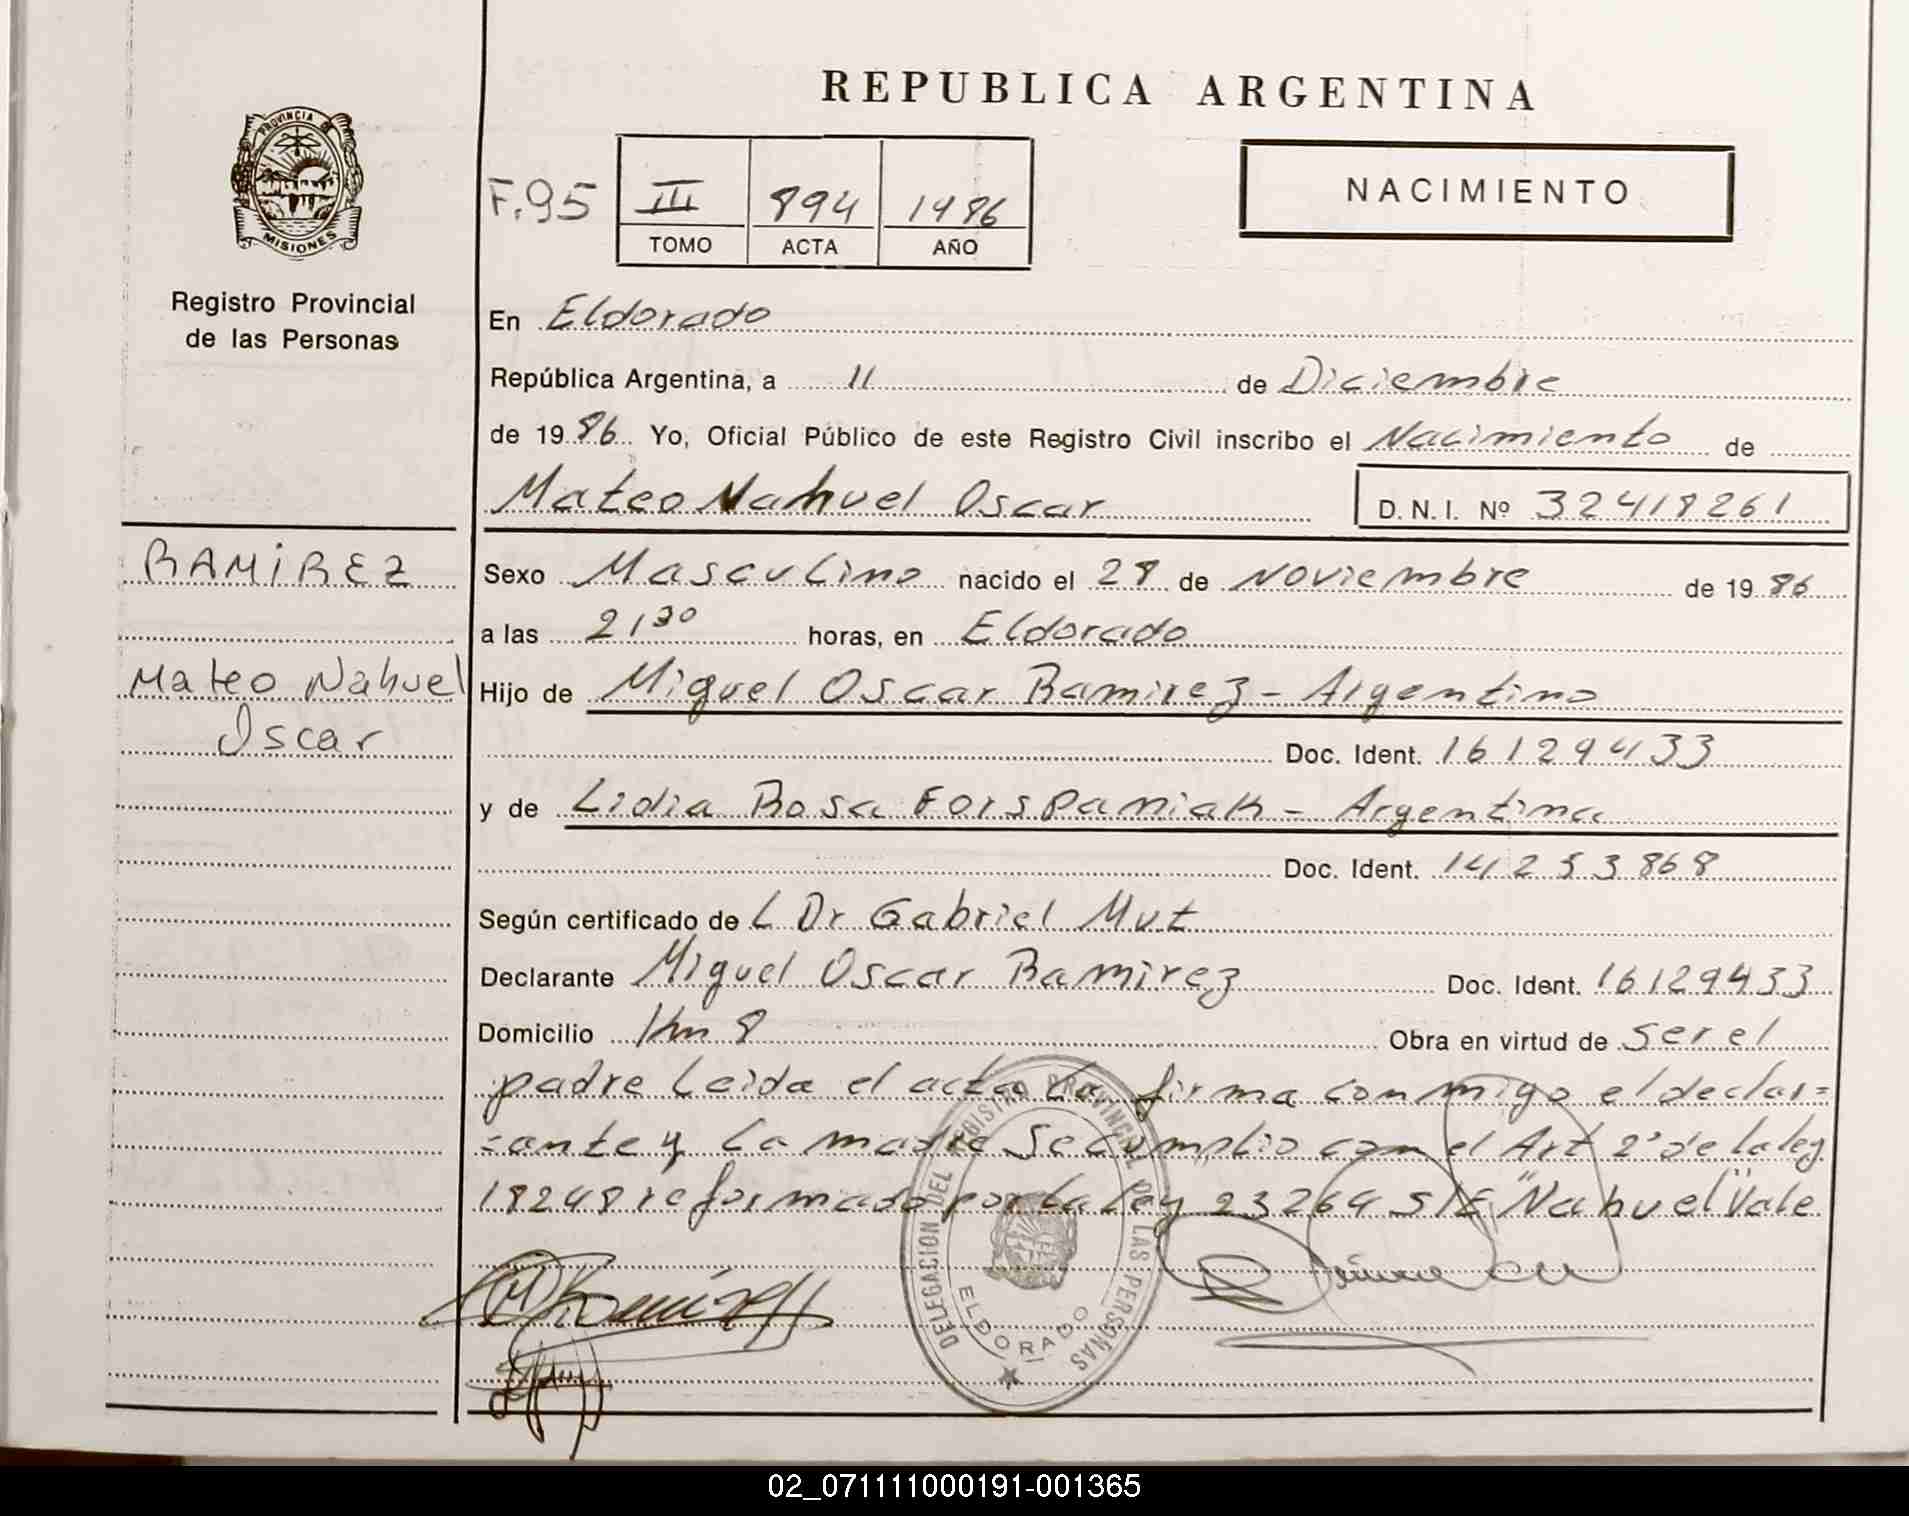 REPUBLICA ARGENTINA
PROVINCIA DE
MISIONES
Registro Provincial
de las Personas
F.95
III 894 1986
TOMO ACTA AÑO
NACIMIENTO
En Eldorado
República Argentina, a 11 de Diciembre
de 1986 Yo, Oficial Público de este Registro Civil inscribo el Nacimiento de
Mateo Nahuel Oscar D.N.I. Nº 32418261
RAMIREZ
Mateo Nahuel
Oscar
Sexo Masculino nacido el 28 de Noviembre de 1986
a las 21 30 horas, en Eldorado
Hijo de Miguel Oscar Ramirez - Argentino
Doc. Ident. 16129433
y de Lidia Rosa Forspaniak - Argentina
Doc. Ident. 14253868
Según certificado de L Dr Gabriel Mut
Declarante Miguel Oscar Ramirez Doc. Ident. 16129433
Domicilio Km 8 Obra en virtud de ser el
padre Leida el acta La firma conmigo el declar=
=ante y La madre Se cumplio con el Art 2º de la ley
18248 reformado por La Ley 23264 S/E "Nahuel" Vale
DELEGACION DEL REGISTRO PROVINCIAL DE LAS PERSONAS
ELDORADO
02_071111000191-001365